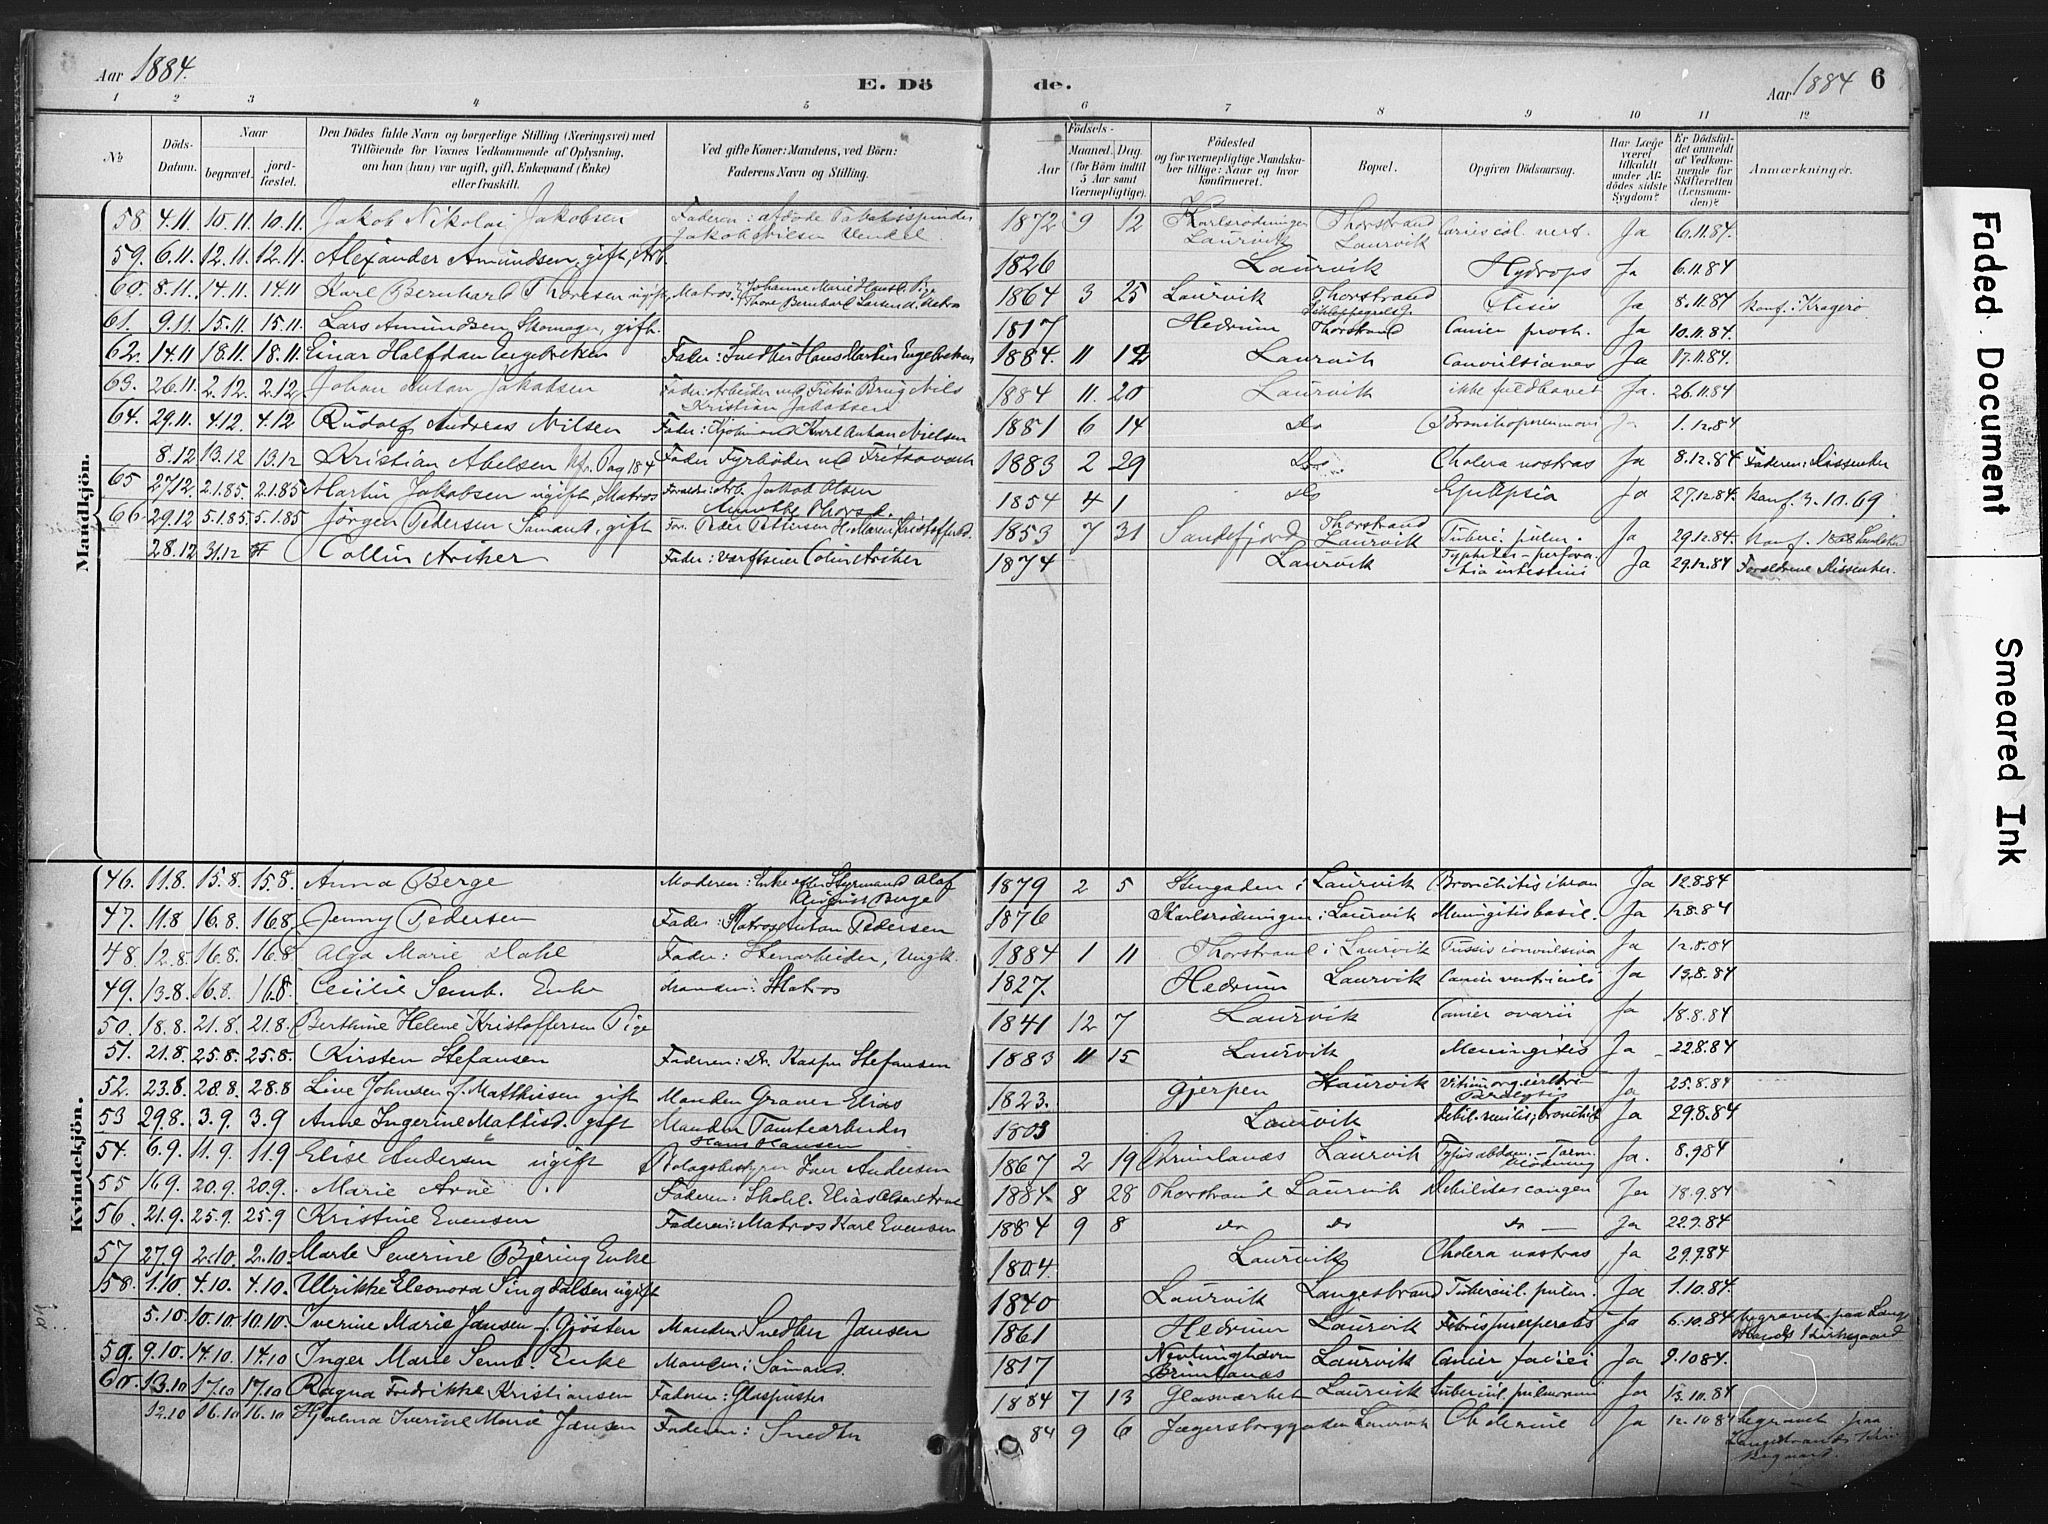 Aar 1884. E. Dö de. Aar 1884 6
1 2 3 4 5 6 7 8 9 10 11 12
№ Döds-Datum. Naar begravet. jordfæstet. Den Dödes fulde Navn og borgerlige Stilling (Næringsvei) med Tilföiende for Voxnes Vedkommende af Oplysning, om han (hun) var ugift, gift, Enkemand (Enke) eller fraskilt. Ved gifte Koner: Mandens, ved Börn: Faderens Navn og Stilling. Födsels- Aar Maaned. Dag. (for Börn indtil 5 Aar samt Værnepligtige). Födested og for værnepligtige Mandskaber tillige: Naar og hvor konfirmeret. Bopæl. Opgiven Dödsaarsag. Har Læge været tilkaldt under Afdödes sidste Sygdom? Er Dödsfaldet anmeldt af Vedkommende for Skifteretten (Lensmanden)? Anmærkninger.
Mandkjön.
58. 4.11. 10.11. 10.11. Jakob Nikolai Jakobsen Faderen: afdøde Tobakspinder Jakob Nilsen Vendel. 1872 9 12 Karlsrødningen Laurvik Thorstrand Laurvik Caries col. vert. Ja 6.11.84.
59. 6.11. 12.11. 12.11. Alexander Amundsen, gift, Arb. 1826 Laurvik Hydrops Ja 6.11.84
60. 8.11. 14.11. 14.11 Karl Bernhard Thoresen ugift, Matros. Johanne Marie Hansd. Pige Thore Bernhard Larsen d. Matros 1864 3 25 Laurvik Thorstrand Ftisis Ja 8.11.84 Konf. i Kragerø
61. 9.11. 15.11. 15.11. Lars Amundsen Skomager, gift. 1817 Hedrum Thorstrand Cancer prost. Ja 10.11.84.
62. 14.11 18.11. 18.11. Einar Halfdan Engebretsen Fader: Snedker Hans Martin Engebretsen 1884. 11 12 Laurvik Convulsiones Ja 17.11.84.
63. 26.11. 2.12. 2.12. Johan Anton Jakobsen Fader: Arbeider ved Fritsø Brug Nils Kristian Jakobsen 1884 11. 20 Laurvik ikke fuldbaaret Ja. 26.11.84
64. 29.11. 4.12. 4.12 Rudolf Andreas Nilsen Fader: Karl Anthon Nielsen 1881 6 14 Do Bronchopneumoni Ja 1.12.84
8.12 13.12 13.12 Kristian Abelsen Pag 184 Fader Fyrbøder ved Fritsøværk 1883 2 29 Do. Cholera nostras Ja 8.12.84 Faderen: Dissenter
65 27.12. 2.1.85. 2.1.85 Martin Jakobsen ugift, Matros Forældre: Arb. Jakob Olsen Annette Thorsd. 1854 4 1 Do Epilepsia Ja 27.12.84. Konf. 3.10.69.
66. 29.12 5.1.85. 5.1.85 Jørgen Pedersen Sømand, gift For. Peder Pettersen H. Maren Kristoffersd. 1853 7 31 Sandefjord Thorstrand Laurvik Tuberc. pulm. Ja 29.12.84. Konf. 1868
28.12 31.12 Collin Archer Fader: Værftseier Colin Archer 1874 Laurvik Typhlitis – perforatio intestini Ja 29.12.84 Forældrene Dissenter.
Kvindekjön.
46. 11.8. 15.8. 15.8. Anna Berge Moderen: Enke efter Styrmand Olaf August Berge 1879 2 5 Stengaden i Laurvik Bronchitis chron Ja 12.8.84
47. 11.8 16.8. 16.8. Jenny Pedersen Fader: Matros Anton Pedersen 1876 Karlsrødningen i Laurvik Meningitis basil. Ja 12.8.84
48. 12.8. 16.8. 16.8 Alga Marie Dahl Fader: Stenarbeider, Ungk. 1884 1 11 Thorstrand i Laurvik Tussis convulsiva Ja 12.8.84
49. 13.8. 16.8. 16.8. Cecilie Semb. Enke Manden: Matros 1827. Hedrum Laurvik Cancer ventriculi Ja 13.8.84
50. 18.8. 21.8. 21.8. Berthine Helene Kristoffersen Pige 1841 12 7 Laurvik Cancer ovarii Ja 18.8.84
51. 21.8. 25.8. 25.8. Kirsten Stefansen Faderen: Dr. Kasper Stefansen 1883 11 15 Laurvik Meningitis Ja 22.8.84
52. 23.8. 28.8. 28.8 Live Johnsen f. Matthisen gift Manden Graver Elias 1823. Gjerpen Laurvik Vitium org. centri Paralysis Ja 25.8.84
53 29.8. 3.9. 3.9 Anne Ingerine Mattisd. gift Manden Tomtearbeider Hans Hansen 1803 Laurvik Debil. senilis; bronchit Ja 29.8.84
54. 6.9. 11.9. 11.9 Elise Andersen ugift Bolagsbestyrer Iver Andersen 1867 2 19 Brunlanæs Laurvik Tyfus abdom. – Tarmblødning Ja. 8.9.84
55 16.9. 20.9. 20.9. Marie Arne Faderen: Skohl. Elias Olsen Arne 1884. 8 28 Thorstrand Laurvik Debilitas congen Ja 18.9.84
56. 21.9. 25.9. 25.9 Kristine Evensen Faderen: Matros Karl Evensen 1884 9 8 do do do — Ja 22.9.84
57. 27.9 2.10. 2.10. Marte Severine Bjering Enke 1804. Laurvik Cholera nostras Ja 29.9.84
58. 1.10. 4.10. 4.10. Ulrikke Eleonora Singdalsen ugift 1840 Laurvik Langestrand Tubercul. pulm. Ja 1.10.84.
5.10. 10.10. 10.10. Iverine Marie Jansen f. Gjøsten Manden: Snedker Jansen 1861 Hedrum Laurvik Febris puerperalis Ja 6.10.84 begravet paa Langestrands Kirkegaard
59. 9.10. 14.10. 14.10 Inger Marie Semb Enke Manden: Sømand. 1817 Nevlunghavn Brunlanæs Laurvik Cancer faciei Ja 9.10.84.
60. 13.10 17.10 17.10 Ragna Fredrikke Kristiansen Faderen: Glaspuster 1884 7 13 Glasværket Laurvik Tubercul. pulmonum Ja 13.10.84
12.10 16.10 16.10 Hjalma Iverine Marie Jansen Faderen: Snedker 84 9 6 Jægersborggaden Laurvik Cholerine Ja 12.10.84 begravet paa Langestrands Kirkegaard.
Faded Document
Smeared Ink